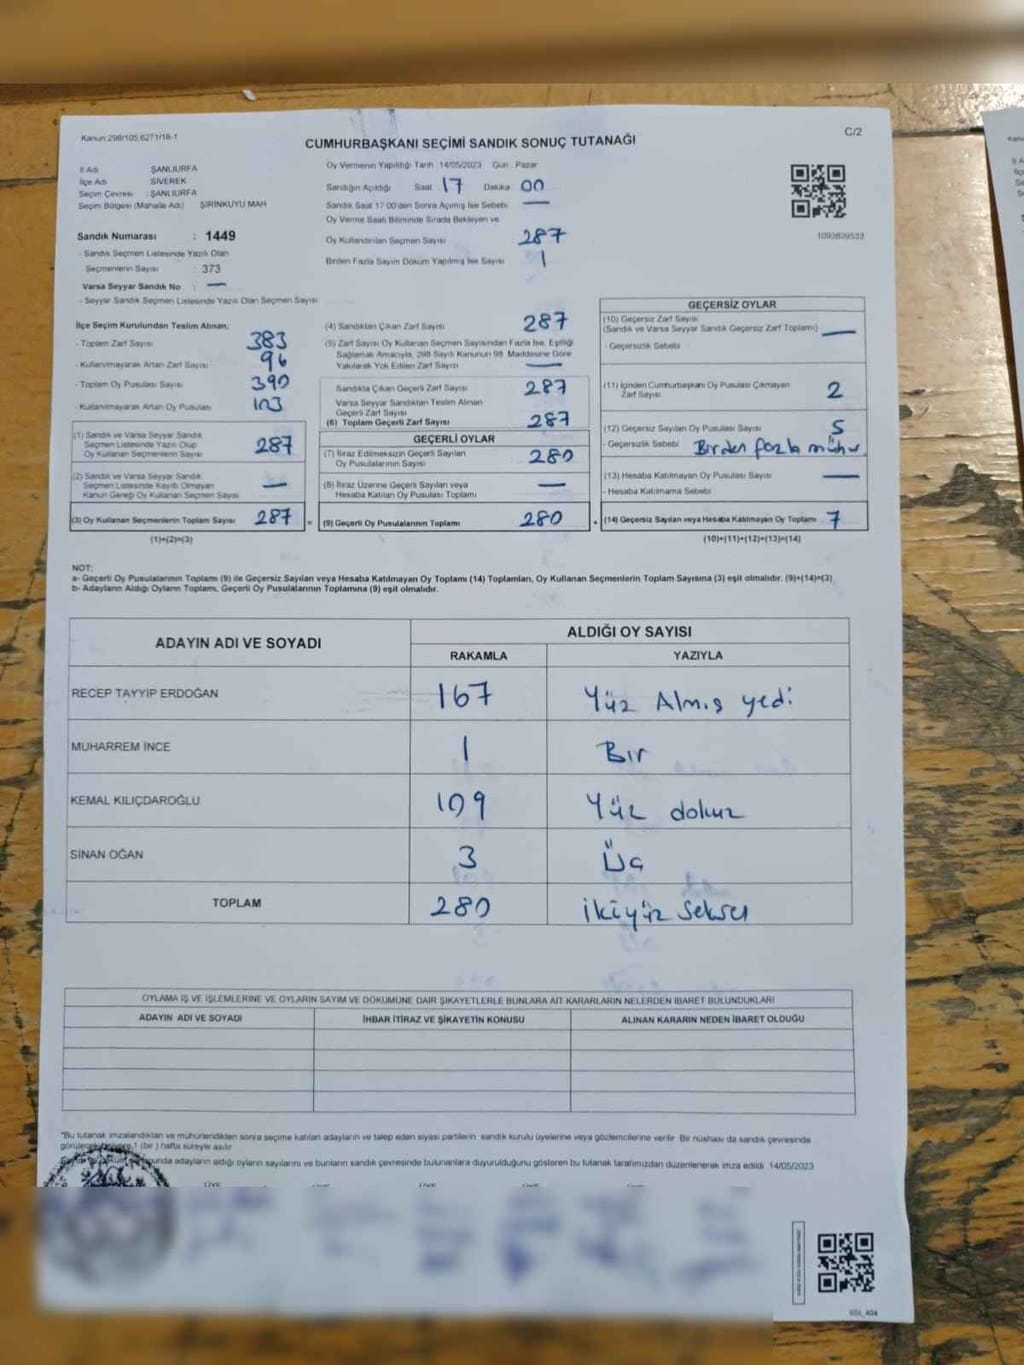 Kanun:298/105,6271/18-1
C/2
CUMHURBAŞKANI SEÇİMİ SANDIK SONUÇ TUTANAĞI
İl Adı ŞANLIURFA
İlçe Adı SİVEREK
Seçim Çevresi : ŞANLIURFA
Seçim Bölgesi (Mahalle Adı) ŞİRİNKUYU MAH
Sandık Numarası : 1449
- Sandık Seçmen Listesinde Yazılı Olan
Seçmenlerin Sayısı : 373
Varsa Seyyar Sandık No : —
- Seyyar Sandık Seçmen Listesinde Yazılı Olan Seçmen Sayısı
Oy Vermenin Yapıldığı Tarih 14/05/2023 Gün Pazar
Sandığın Açıldığı Saat 17 Dakika 00
Sandık Saat 17:00'den Sonra Açılmış İse Sebebi —
Oy Verme Saati Bitiminde Sırada Bekleyen ve
Oy Kullandırılan Seçmen Sayısı 287
Birden Fazla Sayım Döküm Yapılmış İse Sayısı 1
1093839533
İlçe Seçim Kurulundan Teslim Alınan;
- Toplam Zarf Sayısı 383
- Kullanılmayarak Artan Zarf Sayısı 96
- Toplam Oy Pusulası Sayısı 390
- Kullanılmayarak Artan Oy Pusulası 103
(1) Sandık ve Varsa Seyyar Sandık
Seçmen Listesinde Yazılı Olup
Oy Kullanan Seçmenlerin Sayısı 287
(2) Sandık ve Varsa Seyyar Sandık
Seçmen Listesinde Kayıtlı Olmayan
Kanun Gereği Oy Kullanan Seçmen Sayısı —
(3) Oy Kullanan Seçmenlerin Toplam Sayısı 287 =
(1)+(2)=(3)
(4) Sandıktan Çıkan Zarf Sayısı 287
(5) Zarf Sayısı Oy Kullanan Seçmen Sayısından Fazla İse, Eşitliği
Sağlamak Amacıyla, 298 Sayılı Kanunun 98. Maddesine Göre
Yakılarak Yok Edilen Zarf Sayısı —
Sandıkta Çıkan Geçerli Zarf Sayısı 287
Varsa Seyyar Sandıktan Teslim Alınan
Geçerli Zarf Sayısı
(6) Toplam Geçerli Zarf Sayısı 287
GEÇERLİ OYLAR
(7) İtiraz Edilmeksizin Geçerli Sayılan
Oy Pusulalarının Sayısı 280
(8) İtiraz Üzerine Geçerli Sayılan veya
Hesaba Katılan Oy Pusulası Toplamı —
(9) Geçerli Oy Pusulalarının Toplamı 280 +
GEÇERSİZ OYLAR
(10) Geçersiz Zarf Sayısı
(Sandık ve Varsa Seyyar Sandık Geçersiz Zarf Toplamı) —
- Geçersizlik Sebebi
(11) İçinden Cumhurbaşkanı Oy Pusulası Çıkmayan
Zarf Sayısı 2
(12) Geçersiz Sayılan Oy Pusulası Sayısı 5
- Geçersizlik Sebebi Birden fazla mühür
(13) Hesaba Katılmayan Oy Pusulası Sayısı —
- Hesaba Katılmama Sebebi
(14) Geçersiz Sayılan veya Hesaba Katılmayan Oy Toplamı 7
(10)+(11)+(12)+(13)=(14)
NOT:
a- Geçerli Oy Pusulalarının Toplamı (9) ile Geçersiz Sayılan veya Hesaba Katılmayan Oy Toplamı (14) Toplamları, Oy Kullanan Seçmenlerin Toplam Sayısına (3) eşit olmalıdır. (9)+(14)=(3)
b- Adayların Aldığı Oyların Toplamı, Geçerli Oy Pusulalarının Toplamına (9) eşit olmalıdır.
ADAYIN ADI VE SOYADI ALDIĞI OY SAYISI
RAKAMLA YAZIYLA
RECEP TAYYİP ERDOĞAN 167 Yüz Almış yedi
MUHARREM İNCE 1 Bir
KEMAL KILIÇDAROĞLU 109 Yüz dokuz
SİNAN OĞAN 3 Üç
TOPLAM 280 ikiyüz seksen
OYLAMA İŞ VE İŞLEMLERİNE VE OYLARIN SAYIM VE DÖKÜMÜNE DAİR ŞİKAYETLERLE BUNLARA AİT KARARLARIN NELERDEN İBARET BULUNDUKLARI
ADAYIN ADI VE SOYADI İHBAR İTİRAZ VE ŞİKAYETİN KONUSU ALINAN KARARIN NEDEN İBARET OLDUĞU
"Bu tutanak imzalandıktan ve mühürlendikten sonra seçime katılan adayların ve talep eden siyasi partilerin sandık kurulu üyelerine veya gözlemcilerine verilir. Bir nüshası da sandık çevresinde
1 (bir) hafta süreyle asılır.
adayların aldığı oyların sayılarını ve bunların sandık çevresinde bulunanlara duyurulduğunu gösteren bu tutanak tarafımızdan düzenlenerek imza edildi. 14/05/2023